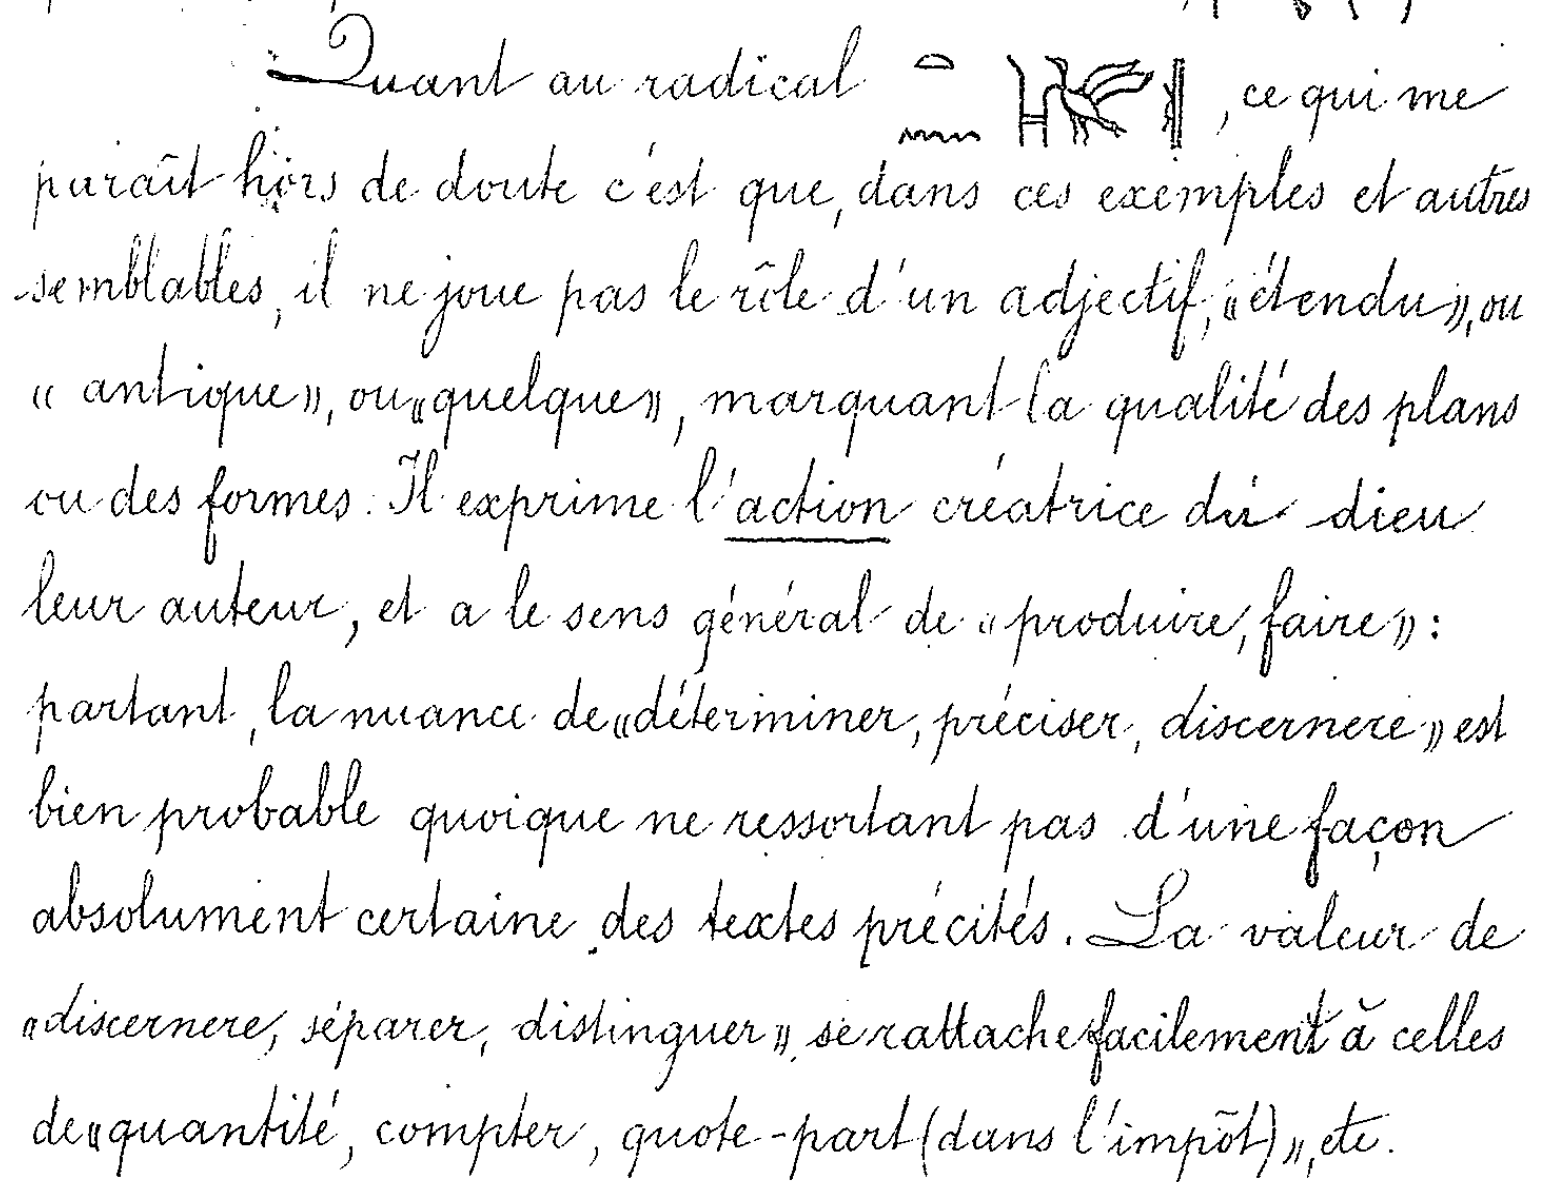 Quant au radical , ce qui me
paraît hors de doute c'est que, dans ces exemples et autres
semblables, il ne joue pas le rôle d'un adjectif, «étendu», ou
« antique», ou «quelque», marquant la qualité des plans
ou des formes. Il exprime l'action créatrice du dieu
leur auteur, et a le sens général de «produire, faire»:
partant, la nuance de «déterminer, préciser, discernere» est
bien probable quoique ne ressortant pas d'une façon
absolument certaine des textes précités. La valeur de
«discernere, séparer, distinguer» se rattache facilement à celles
de «quantité, compter, quote-part (dans l'impôt)», etc.